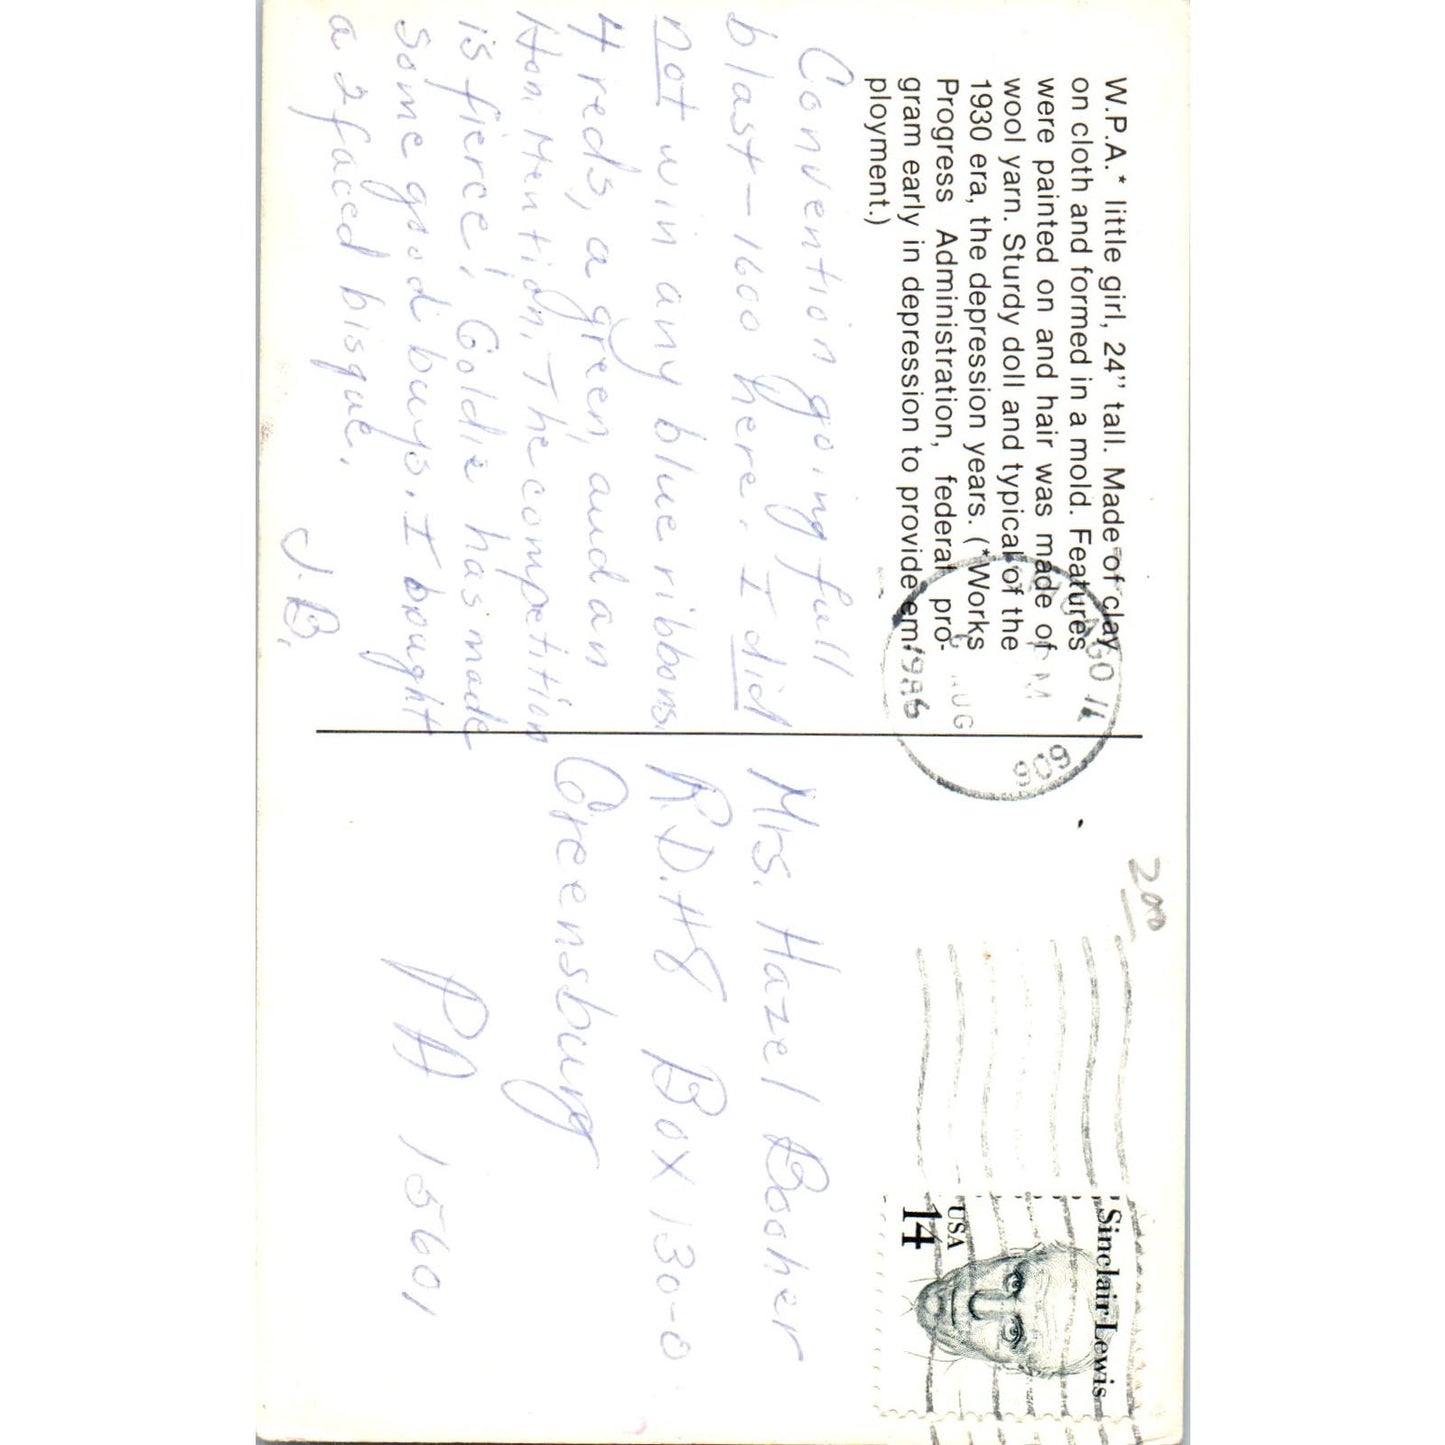 W.P.A.* little girl, 24" tall. Made of clay
on cloth and formed in a mold. Features
were painted on and hair was made of
wool yarn. Sturdy doll and typical of the
1930 era, the depression years. (*Works
Progress Administration, federal pro-
gram early in depression to provide em-
ployment.)
Convention going full
blast - 1600 here. I did
not win any blue ribbons.
4 reds, a green, and an
Hon. Mention. The competition
is fierce! Goldie has made
some good buys. I bought
a 2 faced bisque.
J.B.
CHICAGO IL 606
PM
AUG
1986
200
Sinclair Lewis
USA
14
Mrs. Hazel Booher
R.D. #8 Box 130-0
Greensburg
PA 15601